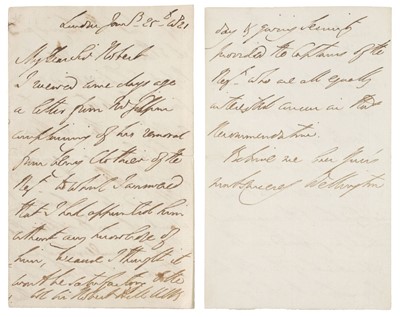 London Jan 25th 1821
My Dear Sir Robert
I received some days ago
a letter from Mr
complaining of his removal
from being Clothier of the
Regt. to which I answered
that I had appointed him
without any knowledge of
him, because I thought it
would be satisfactory to the
Sir Robert Hill
provided the Captains of the
Regt. who are all equally
interested concur in the
recommendation.
Believe me
most sincerely Wellington